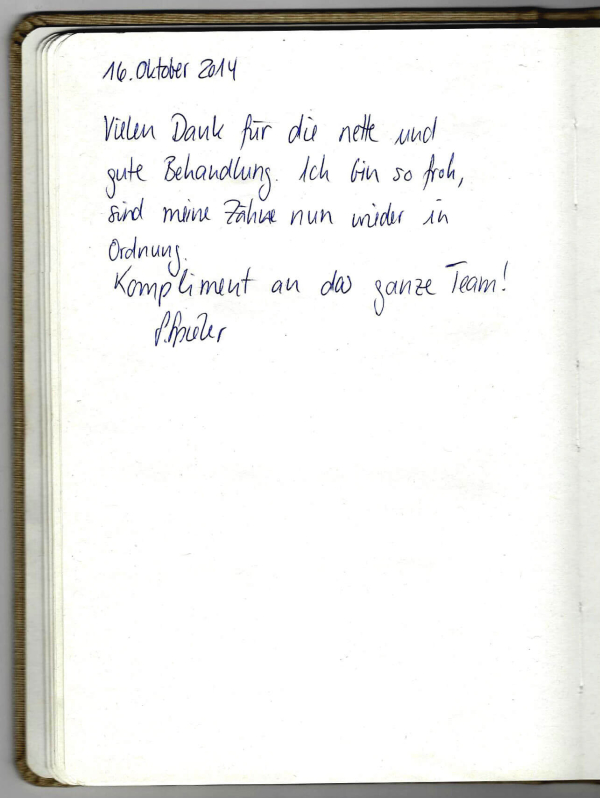 16. Oktober 2014
Vielen Dank für die nette und
gute Behandlung. Ich bin so froh,
sind meine Zähne nun wieder in
Ordnung.
Kompliment an das ganze Team!